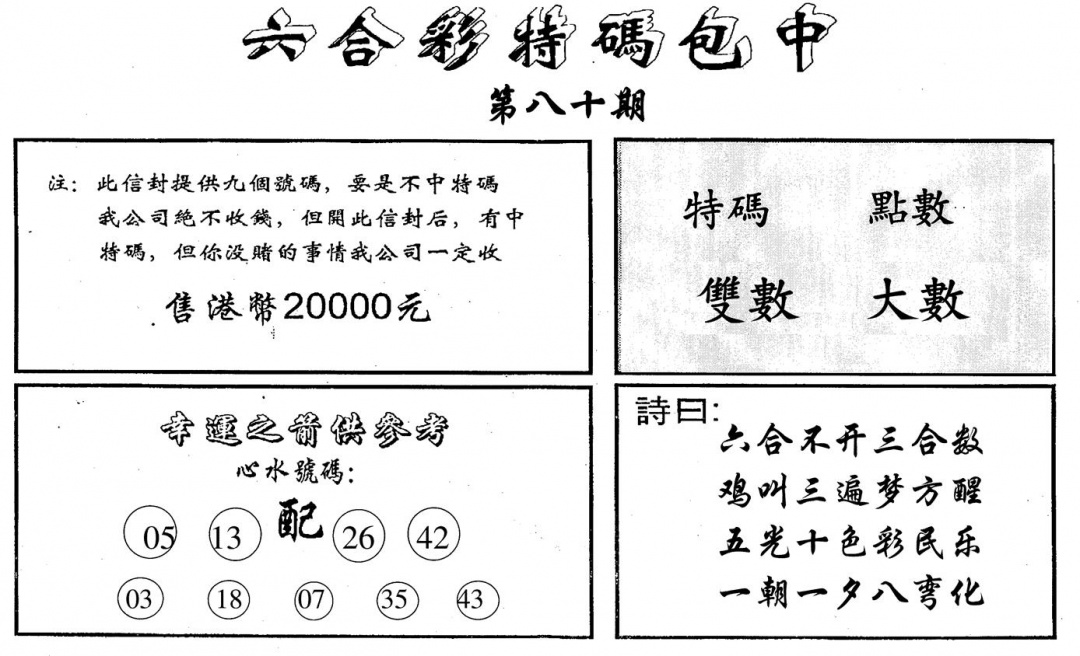 六合彩特碼包中
第八十期
注：此信封提供九個號碼，要是不中特碼
我公司絕不收錢，但開此信封后，有中
特碼，但你没賭的事情我公司一定收
售港幣20000元
特碼 點數
雙數 大數
幸運之箭供參考
心水號碼：
05 13 配 26 42
03 18 07 35 43
詩曰：
六合不开三合数
鸡叫三遍梦方醒
五光十色彩民乐
一朝一夕八弯化